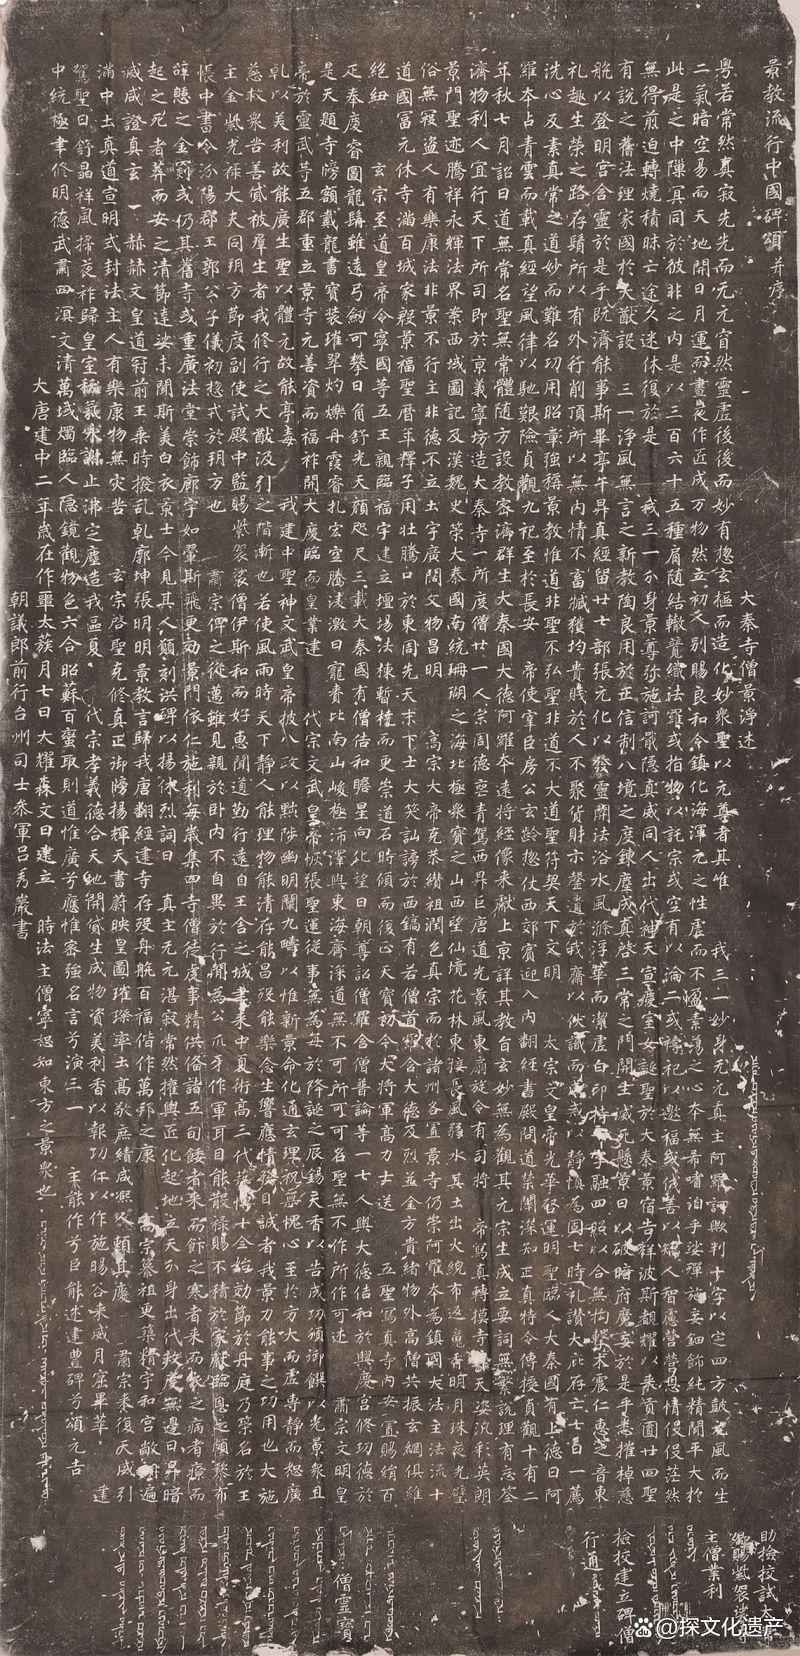 景教流行中國碑頌并序
大秦寺僧景淨述
粵若常然真寂先先而无元窅然靈虛後後而妙有惣玄樞而造化妙眾聖以元尊者其唯 我三一妙身无元真主阿羅訶歟判十字以定四方鼓元風而生
二氣暗空易而天地開日月運而晝夜作匠成万物然立初人別賜良和令鎮化海渾元之性虛而不盈素蕩之心本無希嗜洎乎娑殫施妄鈿飾純精閒平大於
此是之中隟冥同於彼非之內是以三百六十五種肩隨結轍競織法羅或指物以託宗或空有以淪二或禱祀以邀福或伐善以矯人智慮營營恩情役役茫然
無得煎迫轉燒積昧亡途久迷休復於是 我三一分身景尊彌施訶戢隱真威同人出代神天宣慶室女誕聖於大秦景宿告祥波斯覩耀以來貢圓廿四聖
有說之舊法理家國於大猷設 三一淨風無言之新教陶良用於正信制八境之度鍊塵成真啓三常之門開生滅死懸景日以破暗府魔妄於是乎悉摧棹慈
航以登明宮含靈於是乎既濟能事斯畢亭午昇真經留廿七部張元化以發靈關法浴水風滌浮華而潔虛白印持十字融四照以合無拘擊木震仁惠之音東
礼趣生榮之路存鬚所以有外行削頂所以無內情不畜臧獲均貴賤於人不聚貨財示罄遺於我齋以伏識而成戒以靜慎為固七時礼讚大庇存亡七日一薦
洗心反素真常之道妙而難名功用昭彰強稱景教惟道非聖不弘聖非道不大道聖符契天下文明 太宗文皇帝光華啓運明聖臨人大秦國有上德曰阿
羅本占青雲而載真經望風律以馳艱險貞觀九祀至於長安 帝使宰臣房公玄齡惣仗西郊賓迎入內翻經書殿問道禁闈深知正真特令傳授貞觀十有二
年秋七月詔曰道無常名聖無常體隨方設教密濟群生大秦國大德阿羅本遠將經像來獻上京詳其教旨玄妙無為觀其元宗生成立要詞無繁說理有忘筌
濟物利人宜行天下所司即於京義寧坊造大秦寺一所度僧廿一人宗周德喪青駕西昇巨唐道光景風東扇旋令有司將 帝寫真轉摸寺壁天姿汎彩英朗
景門聖迹騰祥永輝法界案西域圖記及漢魏史策大秦國南統珊瑚之海北極眾寶之山西望仙境花林東接長風弱水其土出火綄布返魂香明月珠夜光璧
俗無寇盜人有樂康法非景不行主非德不立土宇廣闊文物昌明 高宗大帝克恭纘祖潤色真宗而於諸州各置景寺仍崇阿羅本為鎮國大法主法流十
道國富元休寺滿百城家殷景福聖曆年釋子用壯騰口於東周先天末下士大笑訕謗於西鎬有若僧首羅含大德及烈並金方貴緒物外高僧共振玄綱俱維
絕紐 玄宗至道皇帝令寧國等五王親臨福宇建立壇場法棟暫橈而更崇道石時傾而復正天寶初令大將軍高力士送 五聖寫真寺內安置賜絹百
疋奉慶睿圖龍髯雖遠弓劍可攀日角舒光天顏咫尺三載大秦國有僧佶和瞻星向化望日朝尊詔僧羅含僧普論等一七人與大德佶和於興慶宮修功德於
是天題寺牓額戴龍書寶裝璀翠灼爍丹霞睿札宏空騰凌激日寵賚比南山峻極沛澤與東海齊深道無不可所可可名聖無不作所作可述 肅宗文明皇
帝於靈武等五郡重立景寺元善資而福祚開大慶臨而皇業建 代宗文武皇帝恢張聖運從事無為每於降誕之辰錫天香以告成功頒御饌以光景眾且
乹以美利故能廣生聖以體元故能亭毒 我建中聖神文武皇帝披八政以黜陟幽明闡九疇以惟新景命化通玄理祝無愧心至於方大而虛專靜而恕廣
慈救眾苦善貸被群生者我修行之大猷汲引之階漸也若使風雨時天下靜人能理物能清存能昌歿能樂念生響應情發目誠者我景力能事之功用也大施
主金紫光祿大夫同朔方節度副使試殿中監賜紫袈裟僧伊斯和而好惠聞道勤行遠自王舍之城聿來中夏術高三代藝博十全始効節於丹庭乃策名於王
帳中書令汾陽郡王郭公子儀初惣戎於朔方也 肅宗俾之從邁雖見親於卧內不自異於行閒為公爪牙作軍耳目能散祿賜不積於家獻臨恩之頗黎布
辭憩之金罽或仍其舊寺或重廣法堂崇飾廊宇如翬斯飛更効景門依仁施利每歲集四寺僧徒虔事精供俻諸五旬餧者來而飰之寒者來而衣之病者療而
起之死者葬而安之清節達娑未聞斯美白衣景士今見其人願刻洪碑以揚休烈詞曰 真主无元湛寂常然權輿匠化起地立天分身出代救度無邊日昇暗
滅咸證真玄 赫赫文皇道冠前王乘時撥亂乹廓坤張明明景教言歸我唐翻經建寺存歿舟航百福偕作萬邦之康 高宗纂祖更築精宇和宮敞朗遍
滿中土真道宣明式封法主人有樂康物無災苦 玄宗啓聖克修真正御牓揚輝天書蔚映皇圖璀璨率土高敬庶績咸熙人賴其慶 肅宗來復天威引
駕聖日舒晶祥風掃夜祚歸皇室祅氛永謝止沸定塵造我區夏 代宗孝義德合天地開貸生成物資美利香以報功仁以作施暘谷來威月窟畢萃 建
中統極聿修明德武肅四溟文清萬域燭臨人隱鏡觀物色六合昭蘇百蠻取則道惟廣兮應惟密強名言兮演三一 主能作兮臣能述建豐碑兮頌元吉
大唐建中二年歲在作噩太蔟月七日大耀森文日建立 時法主僧寧恕知東方之景眾也
朝議郎前行台州司士參軍吕秀巖書
助撿挍試太常
卿賜紫袈裟寺
主僧業利
撿挍建立碑僧
行通
僧靈寶
@探文化遗产